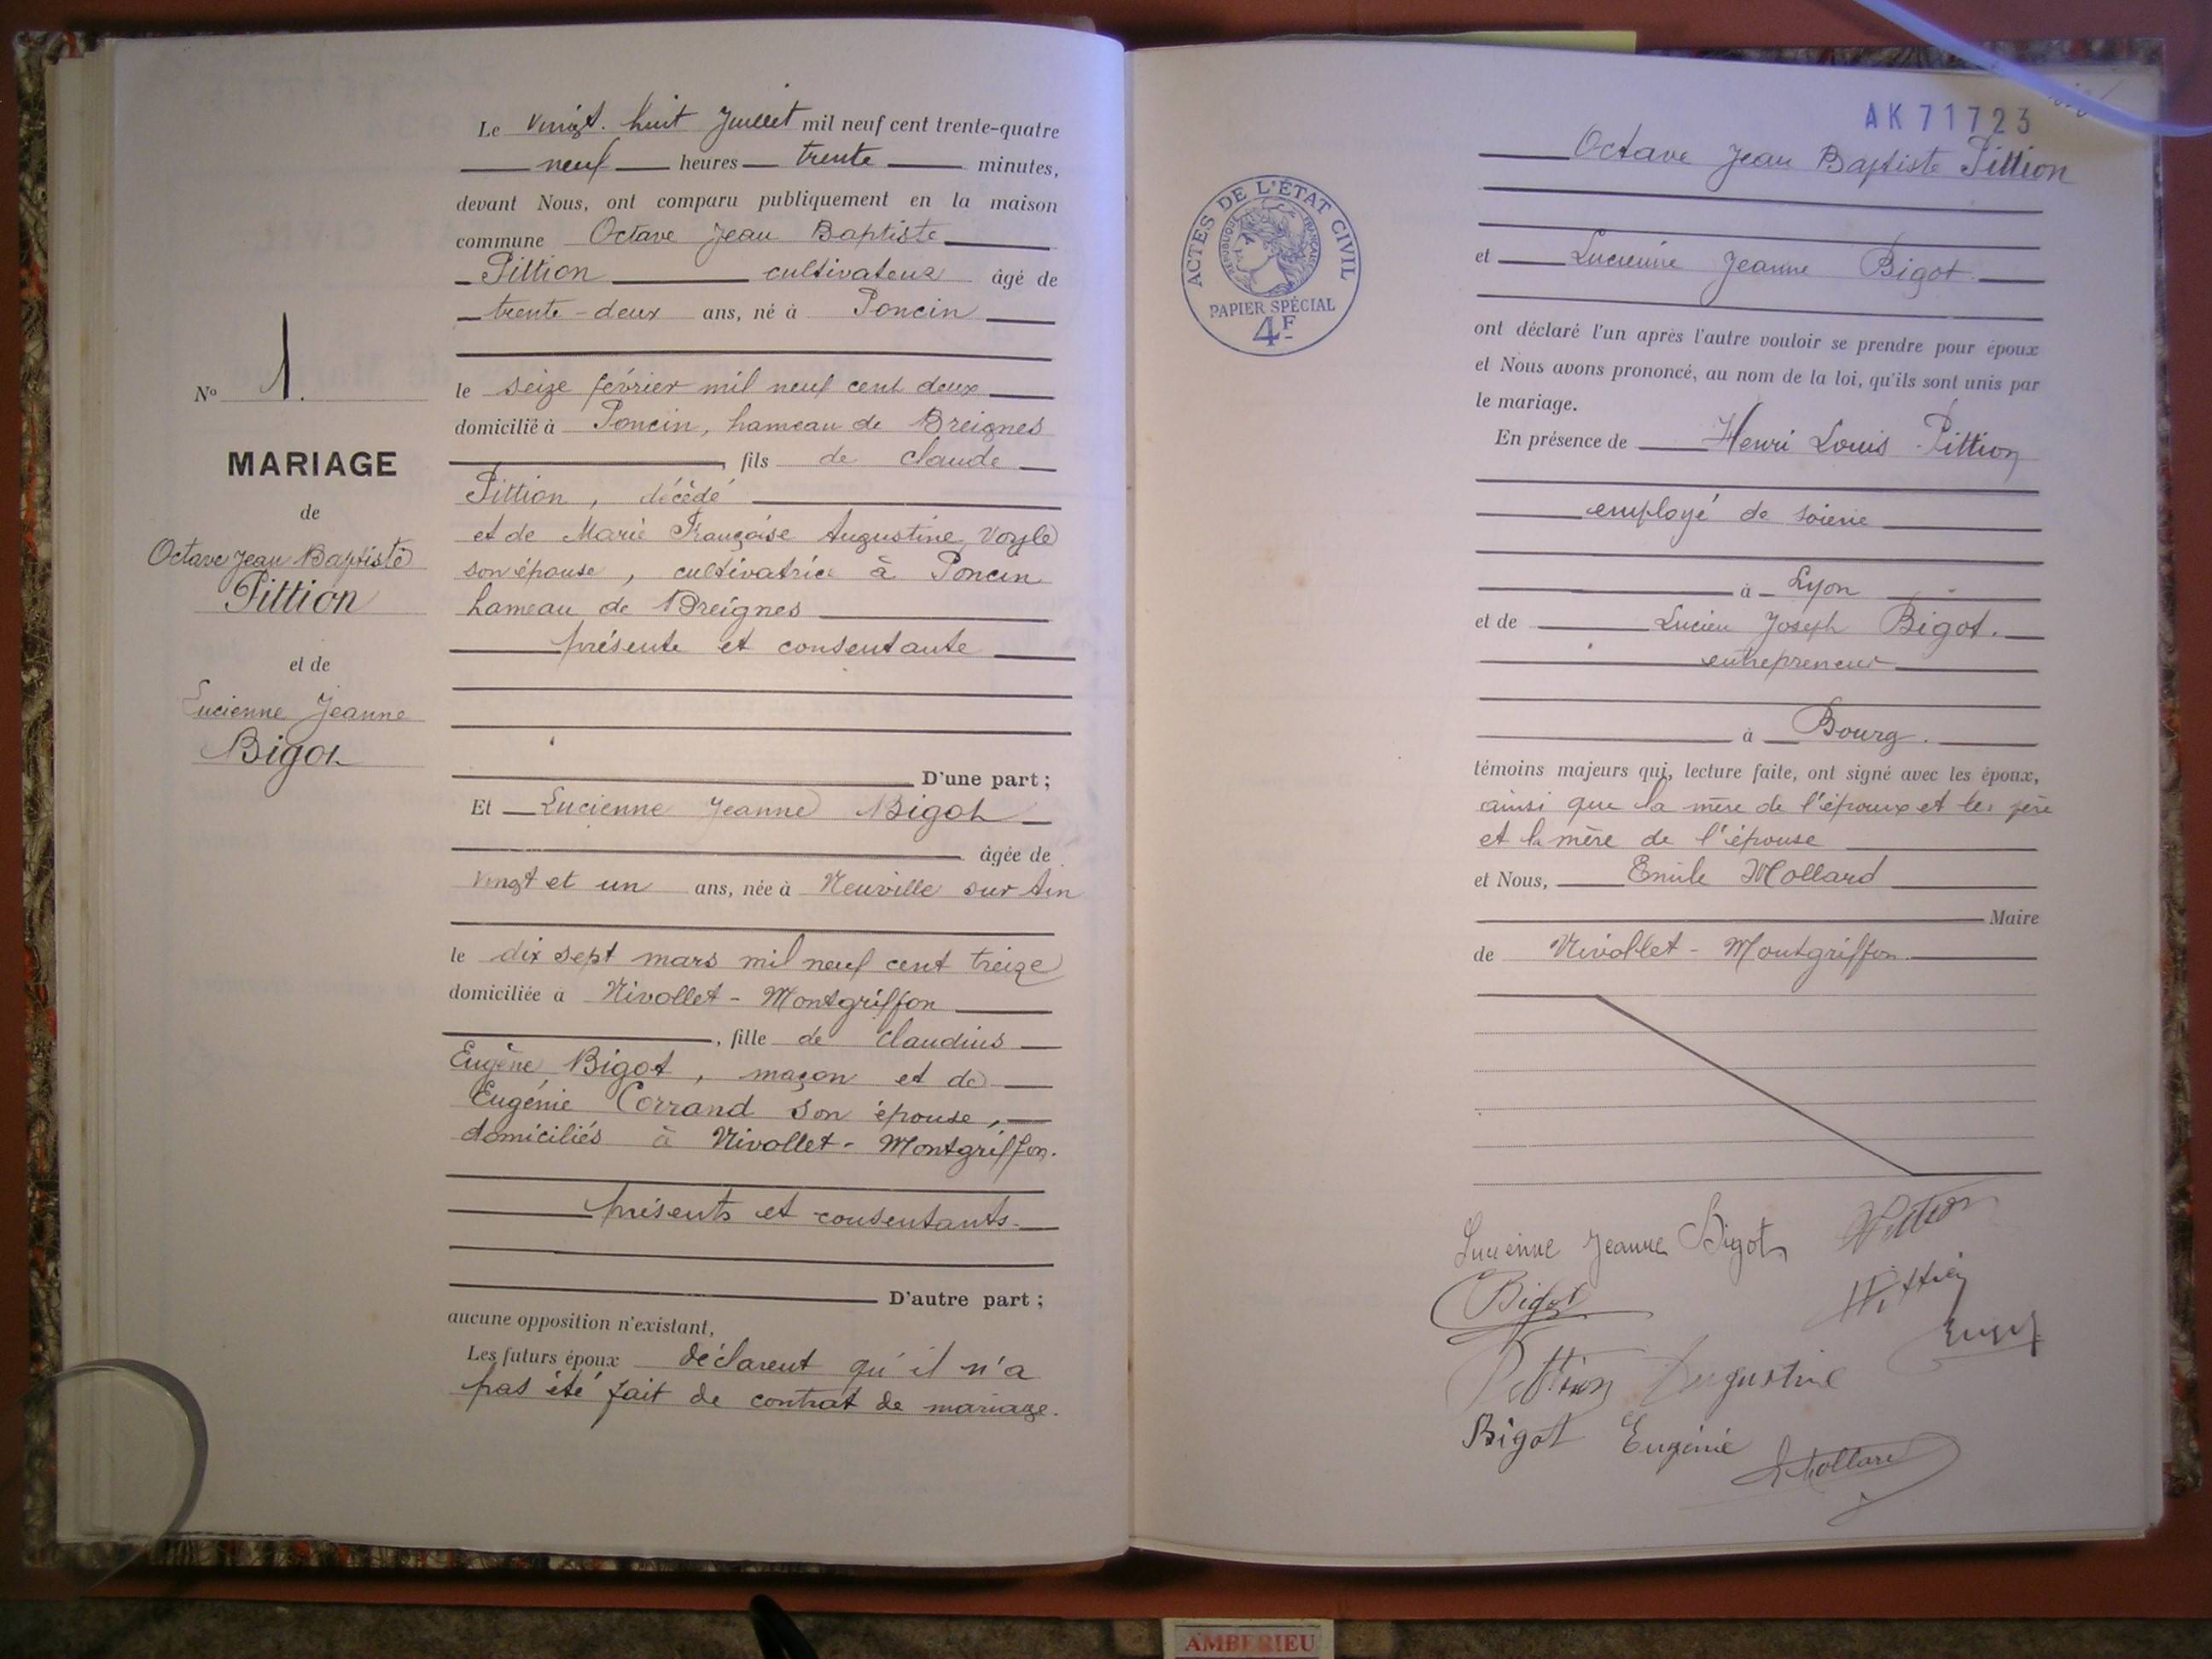 Le vingt-huit Juillet mil neuf cent trente-quatre
neuf heures trente minutes,
devant Nous, ont comparu publiquement en la maison
commune Octave Jean Baptiste
Pittion cultivateur âgé de
trente-deux ans, né à Poncin
le seize février mil neuf cent deux
domicilié à Poncin, hameau de Breignes
, fils de Claude
Pittion, décédé
et de Marie Françoise Augustine Voyle
son épouse, cultivatrice à Poncin
hameau de Breignes
présente et consentante
D'une part ;
Et Lucienne Jeanne Bigot
âgée de
vingt et un ans, née à Neuville sur Ain
le dix sept mars mil neuf cent treize
domiciliée à Nivollet-Montgriffon
, fille de Claudius
Eugène Bigot, maçon et de
Eugénie Corrand son épouse,
domiciliés à Nivollet-Montgriffon.
présents et consentants.
D'autre part ;
aucune opposition n'existant,
Les futurs époux déclarent qu'il n'a
pas été fait de contrat de mariage.
No 1.
MARIAGE
de
Octave Jean Baptiste
Pittion
et de
Lucienne Jeanne
Bigot
AK 71723
ACTES DE L'ÉTAT CIVIL
RÉPUBLIQUE FRANÇAISE
PAPIER SPÉCIAL
4F
Octave Jean Baptiste Pittion
et Lucienne Jeanne Bigot.
ont déclaré l'un après l'autre vouloir se prendre pour époux
et Nous avons prononcé, au nom de la loi, qu'ils sont unis par
le mariage.
En présence de Henri Louis Pittion
employé de soierie
à Lyon
et de Lucien Joseph Bigot.
entrepreneur
à Bourg.
témoins majeurs qui, lecture faite, ont signé avec les époux,
ainsi que la mère de l'époux et les père
et la mère de l'épouse
et Nous, Emile Mollard
Maire
de Nivollet-Montgriffon.
Lucienne Jeanne Bigot Pittion
Bigot Pittion
Pittion Augustine
Bigot Eugénie Mollard
AMBERIEU